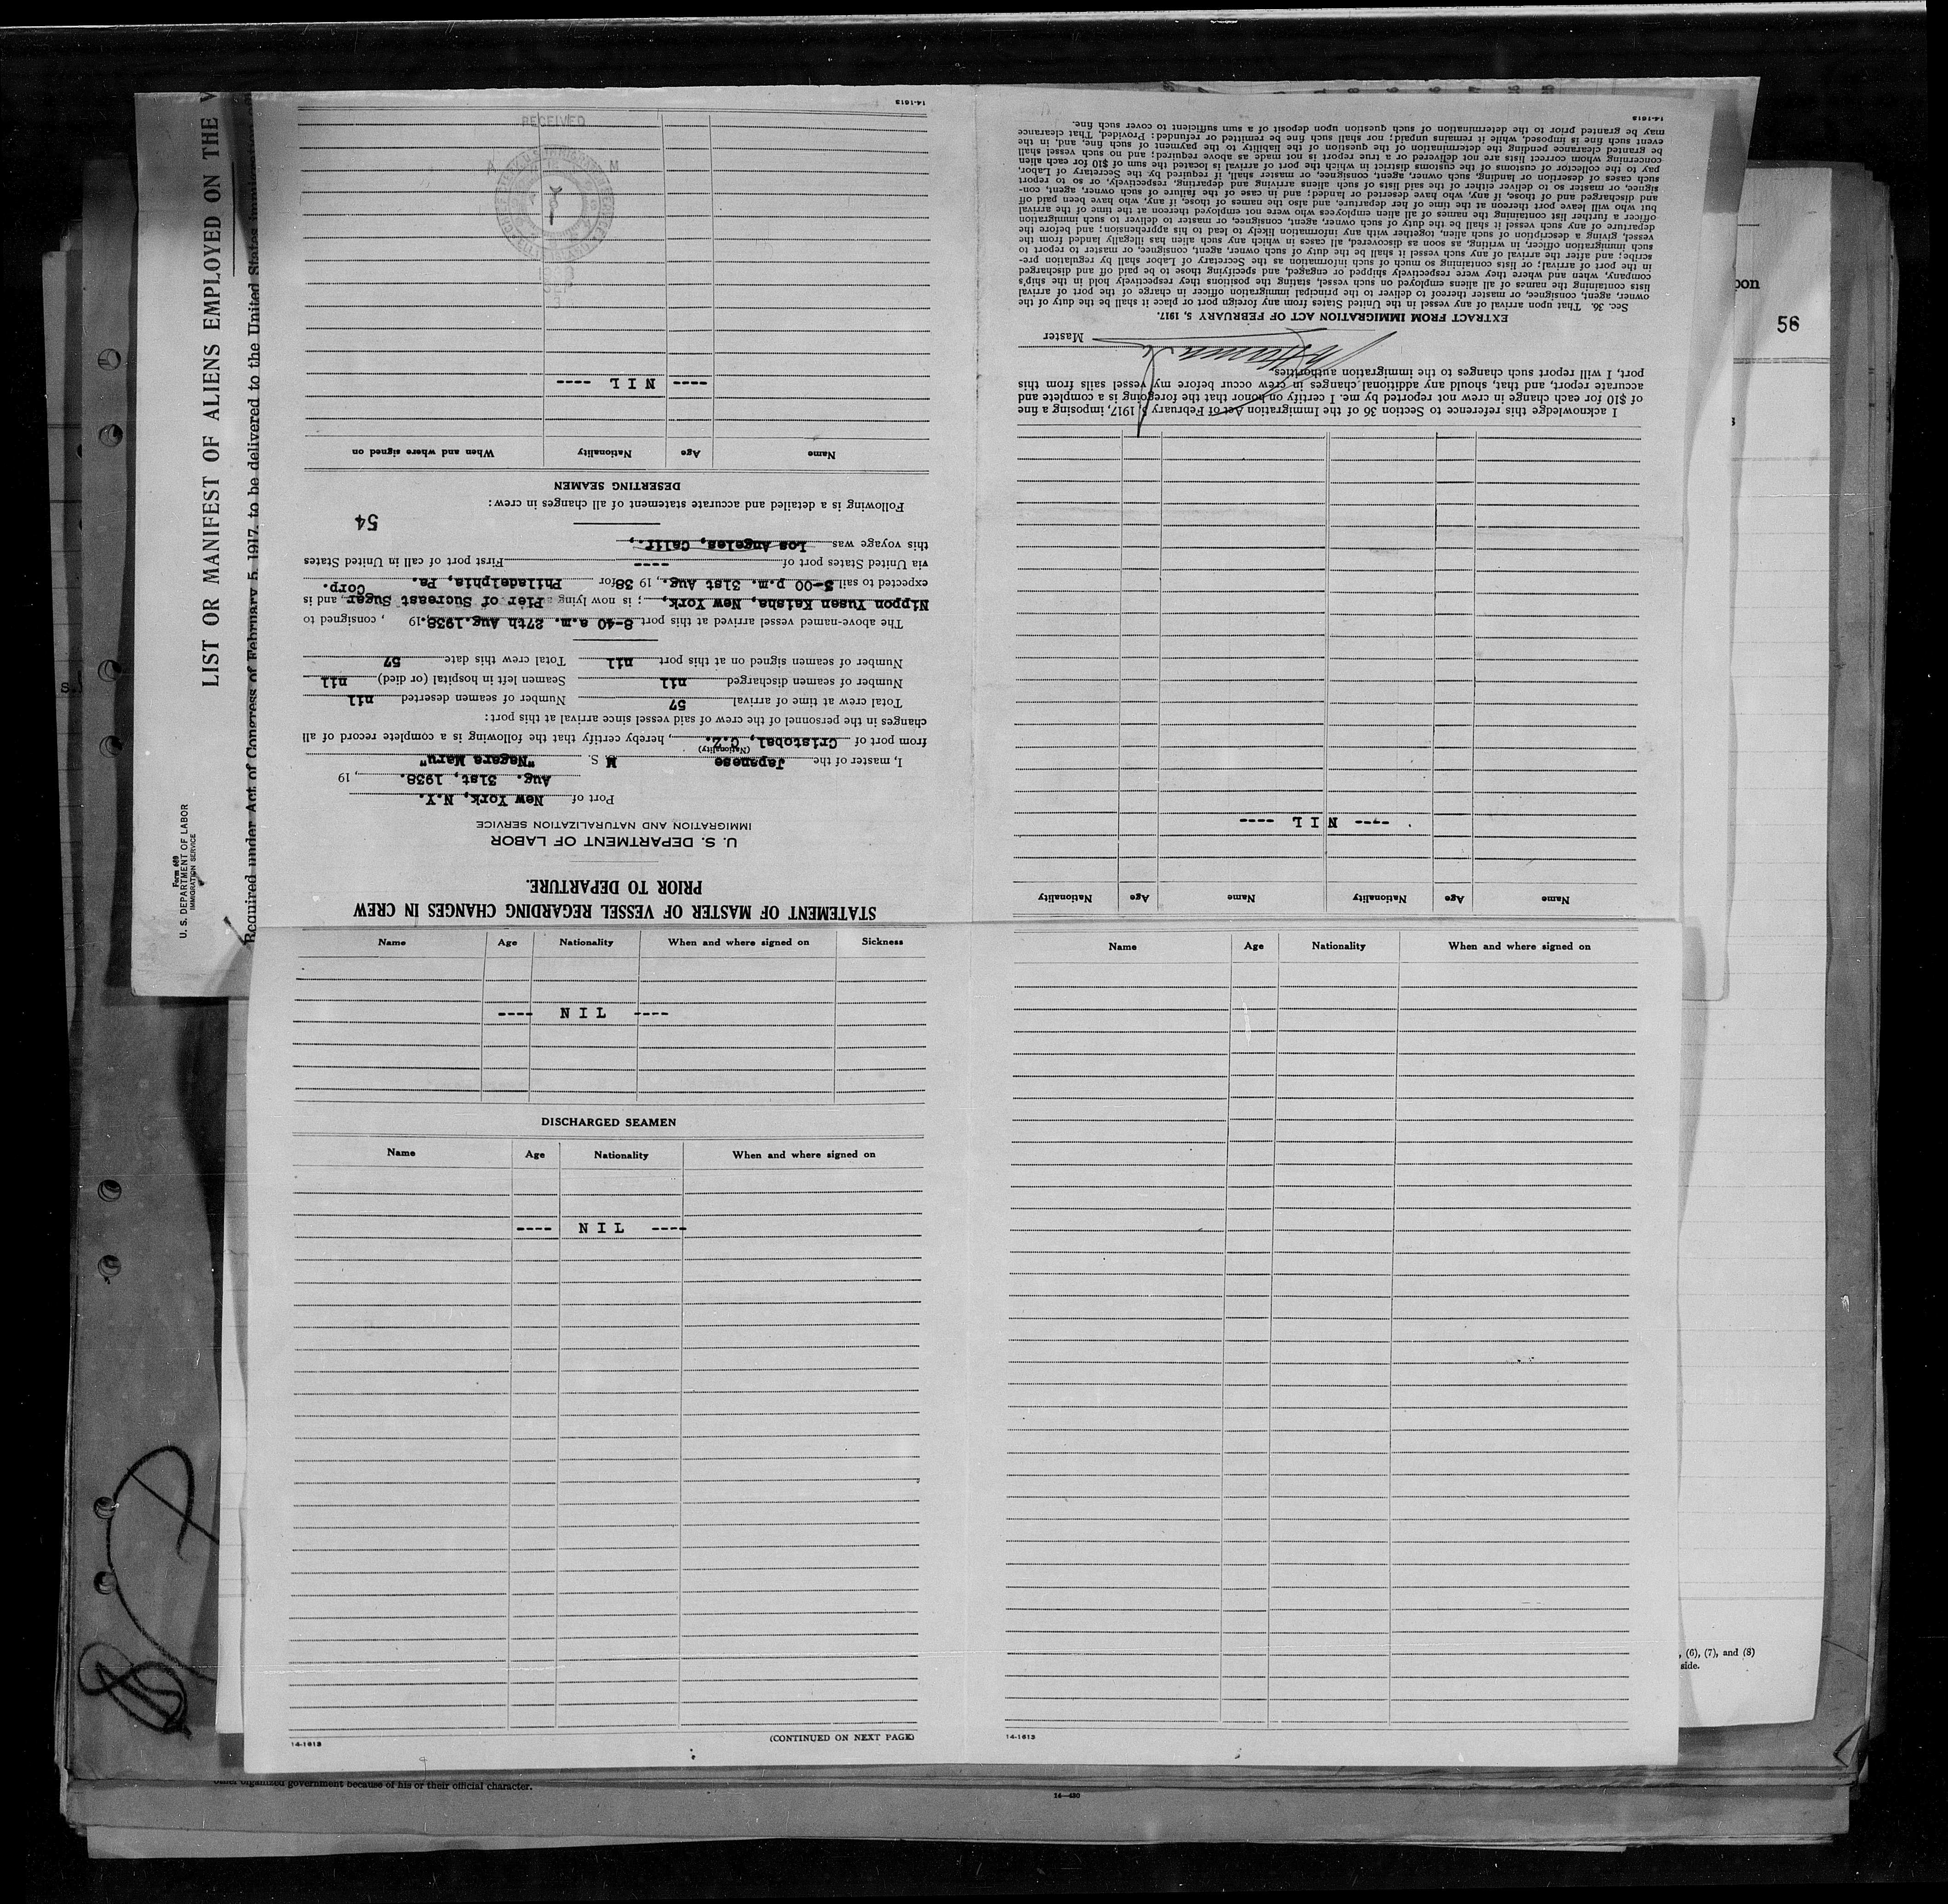 LIST OR MANIFEST OF ALIENS EMPLOYED ON THE V
Required under Act of Congress of February 5, 1917, to be delivered to the United States
Form 689
U. S. DEPARTMENT OF LABOR
IMMIGRATION SERVICE
STATEMENT OF MASTER OF VESSEL REGARDING CHANGES IN CREW
PRIOR TO DEPARTURE.
U. S. DEPARTMENT OF LABOR
IMMIGRATION AND NATURALIZATION SERVICE
Port of New York, N.Y.
Aug. 31st, 1938. , 19
I, master of the Japanese M S. "Nagara Maru"
(Nationality)
from port of Cristobal, C.Z. , hereby certify that the following is a complete record of all
changes in the personnel of the crew of said vessel since arrival at this port:
Total crew at time of arrival 57 Number of seamen deserted nil
Number of seamen discharged nil Seamen left in hospital (or died) nil
Number of seamen signed on at this port nil Total crew this date 57
The above-named vessel arrived at this port 8-40 a.m. 27th Aug.1938. 19 , consigned to
Nippon Yusen Kaisha, New York, ; is now lying Pier of Sucreast Sugar Corp. , and is
expected to sail 5-00 p.m. 31st Aug., 19 38 for Philadelphia, Pa.
via United States port of ---- First port of call in United States
this voyage was Los Angeles, Calif.,
54
Following is a detailed and accurate statement of all changes in crew:
DESERTING SEAMEN
Name Age Nationality When and where signed on
---- NIL ----
RECEIVED
14-1613
Name Age Nationality When and where signed on Sickness
---- NIL ----
DISCHARGED SEAMEN
Name Age Nationality When and where signed on
---- NIL ----
14-1613
(CONTINUED ON NEXT PAGE)
Name Age Nationality When and where signed on
14-1613
Name Age Nationality Name Age Nationality
---- NIL ----
I acknowledge this reference to Section 36 of the Immigration Act of February 5, 1917, imposing a fine
of $10 for each change in crew not reported by me. I certify on honor that the foregoing is a complete and
accurate report, and that, should any additional changes in crew occur before my vessel sails from this
port, I will report such changes to the immigration authorities.
Master
EXTRACT FROM IMMIGRATION ACT OF FEBRUARY 5, 1917.
Sec. 36. That upon arrival of any vessel in the United States from any foreign port or place it shall be the duty of the
owner, agent, consignee, or master thereof to deliver to the principal immigration officer in charge of the port of arrival
lists containing the names of all aliens employed on such vessel, stating the positions they respectively hold in the ship's
company, when and where they were respectively shipped or engaged, and specifying those to be paid off and discharged
in the port of arrival; or lists containing so much of such information as the Secretary of Labor shall by regulation pre-
scribe; and after the arrival of any such vessel it shall be the duty of such owner, agent, consignee, or master to report to
such immigration officer, in writing, as soon as discovered, all cases in which any such alien has illegally landed from the
vessel, giving a description of such alien, together with any information likely to lead to his apprehension; and before the
departure of any such vessel it shall be the duty of such owner, agent, consignee, or master to deliver to such immigration
officer a further list containing the names of all alien employees who were not employed thereon at the time of the arrival
but who will leave port thereon at the time of her departure, and also the names of those, if any, who have been paid off
and discharged and of those, if any, who have deserted or landed; and in case of the failure of such owner, agent, con-
signee, or master so to deliver either of the said lists of such aliens arriving and departing, respectively, or so to report
such cases of desertion or landing, such owner, agent, consignee, or master shall, if required by the Secretary of Labor,
pay to the collector of customs of the customs district in which the port of arrival is located the sum of $10 for each alien
concerning whom correct lists are not delivered or a true report is not made as above required; and no such vessel shall
be granted clearance pending the determination of the question of the liability to the payment of such fine, and, in the
event such fine is imposed, while it remains unpaid; nor shall such fine be remitted or refunded: Provided, That clearance
may be granted prior to the determination of such question upon deposit of a sum sufficient to cover such fine.
14-1613
pon
56
, (6), (7), and (8)
side.
other organized government because of his or their official character.
14-430